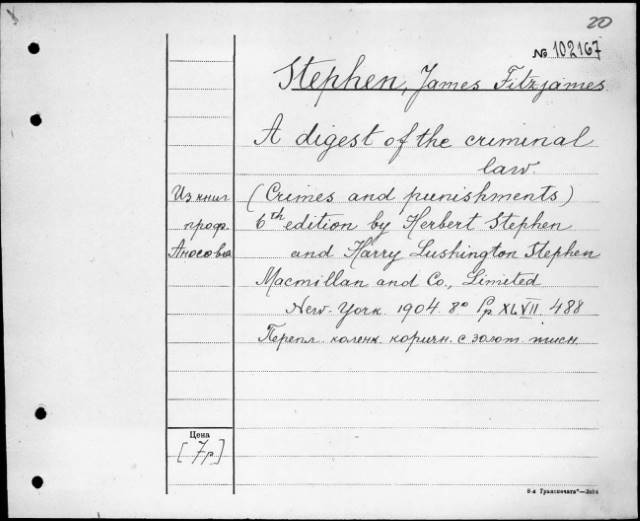 20
№ 102167
Stephen, James Fitzjames.
A digest of the criminal
law.
Из книг
проф.
Аносова
(Crimes and punishments)
6th edition by Herbert Stephen
and Harry Lushington Stephen
Macmillan and Co., Limited
New-York. 1904. 8° Pp XLVII. 488
Перепл. коленк. коричн. с золот. тисн.
Цена
[7р.]